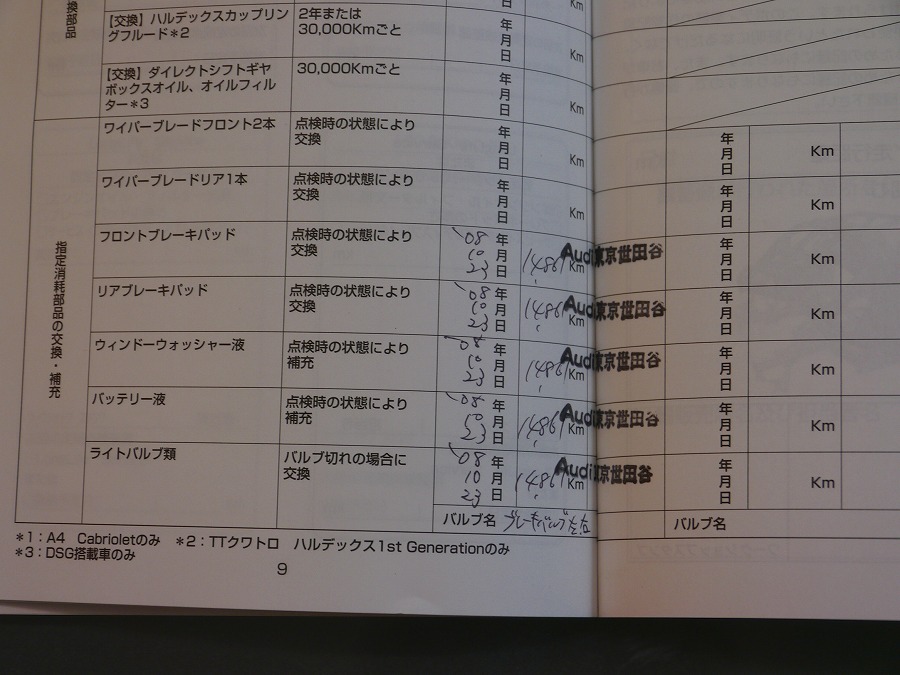 換部品
Km
日
【交換】ハルデックスカップリン
グフルード＊2
2年または
30,000Kmごと
年
月
日
Km
【交換】ダイレクトシフトギヤ
ボックスオイル、オイルフィル
ター＊3
30,000Kmごと
年
月
日
Km
指定消耗部品の交換・補充
ワイパーブレードフロント2本
点検時の状態により
交換
年
月
日
Km
年
月
日
Km
ワイパーブレードリア1本
点検時の状態により
交換
年
月
日
Km
年
月
日
Km
フロントブレーキパッド
点検時の状態により
交換
'08 年
10 月
23 日
14,861 Km
Audi東京世田谷
年
月
日
Km
リアブレーキパッド
点検時の状態により
交換
'08 年
10 月
23 日
14,861 Km
Audi東京世田谷
年
月
日
Km
ウィンドーウォッシャー液
点検時の状態により
補充
'08 年
10 月
23 日
14,861 Km
Audi東京世田谷
年
月
日
Km
バッテリー液
点検時の状態により
補充
'08 年
10 月
23 日
14,861 Km
Audi東京世田谷
年
月
日
Km
ライトバルブ類
バルブ切れの場合に
交換
'08 年
10 月
23 日
14,861 Km
Audi東京世田谷
年
月
日
Km
バルブ名 ブレーキバルブ左右
バルブ名
＊1：A4 Cabrioletのみ ＊2：TTクワトロ ハルデックス1st Generationのみ
＊3：DSG搭載車のみ
9